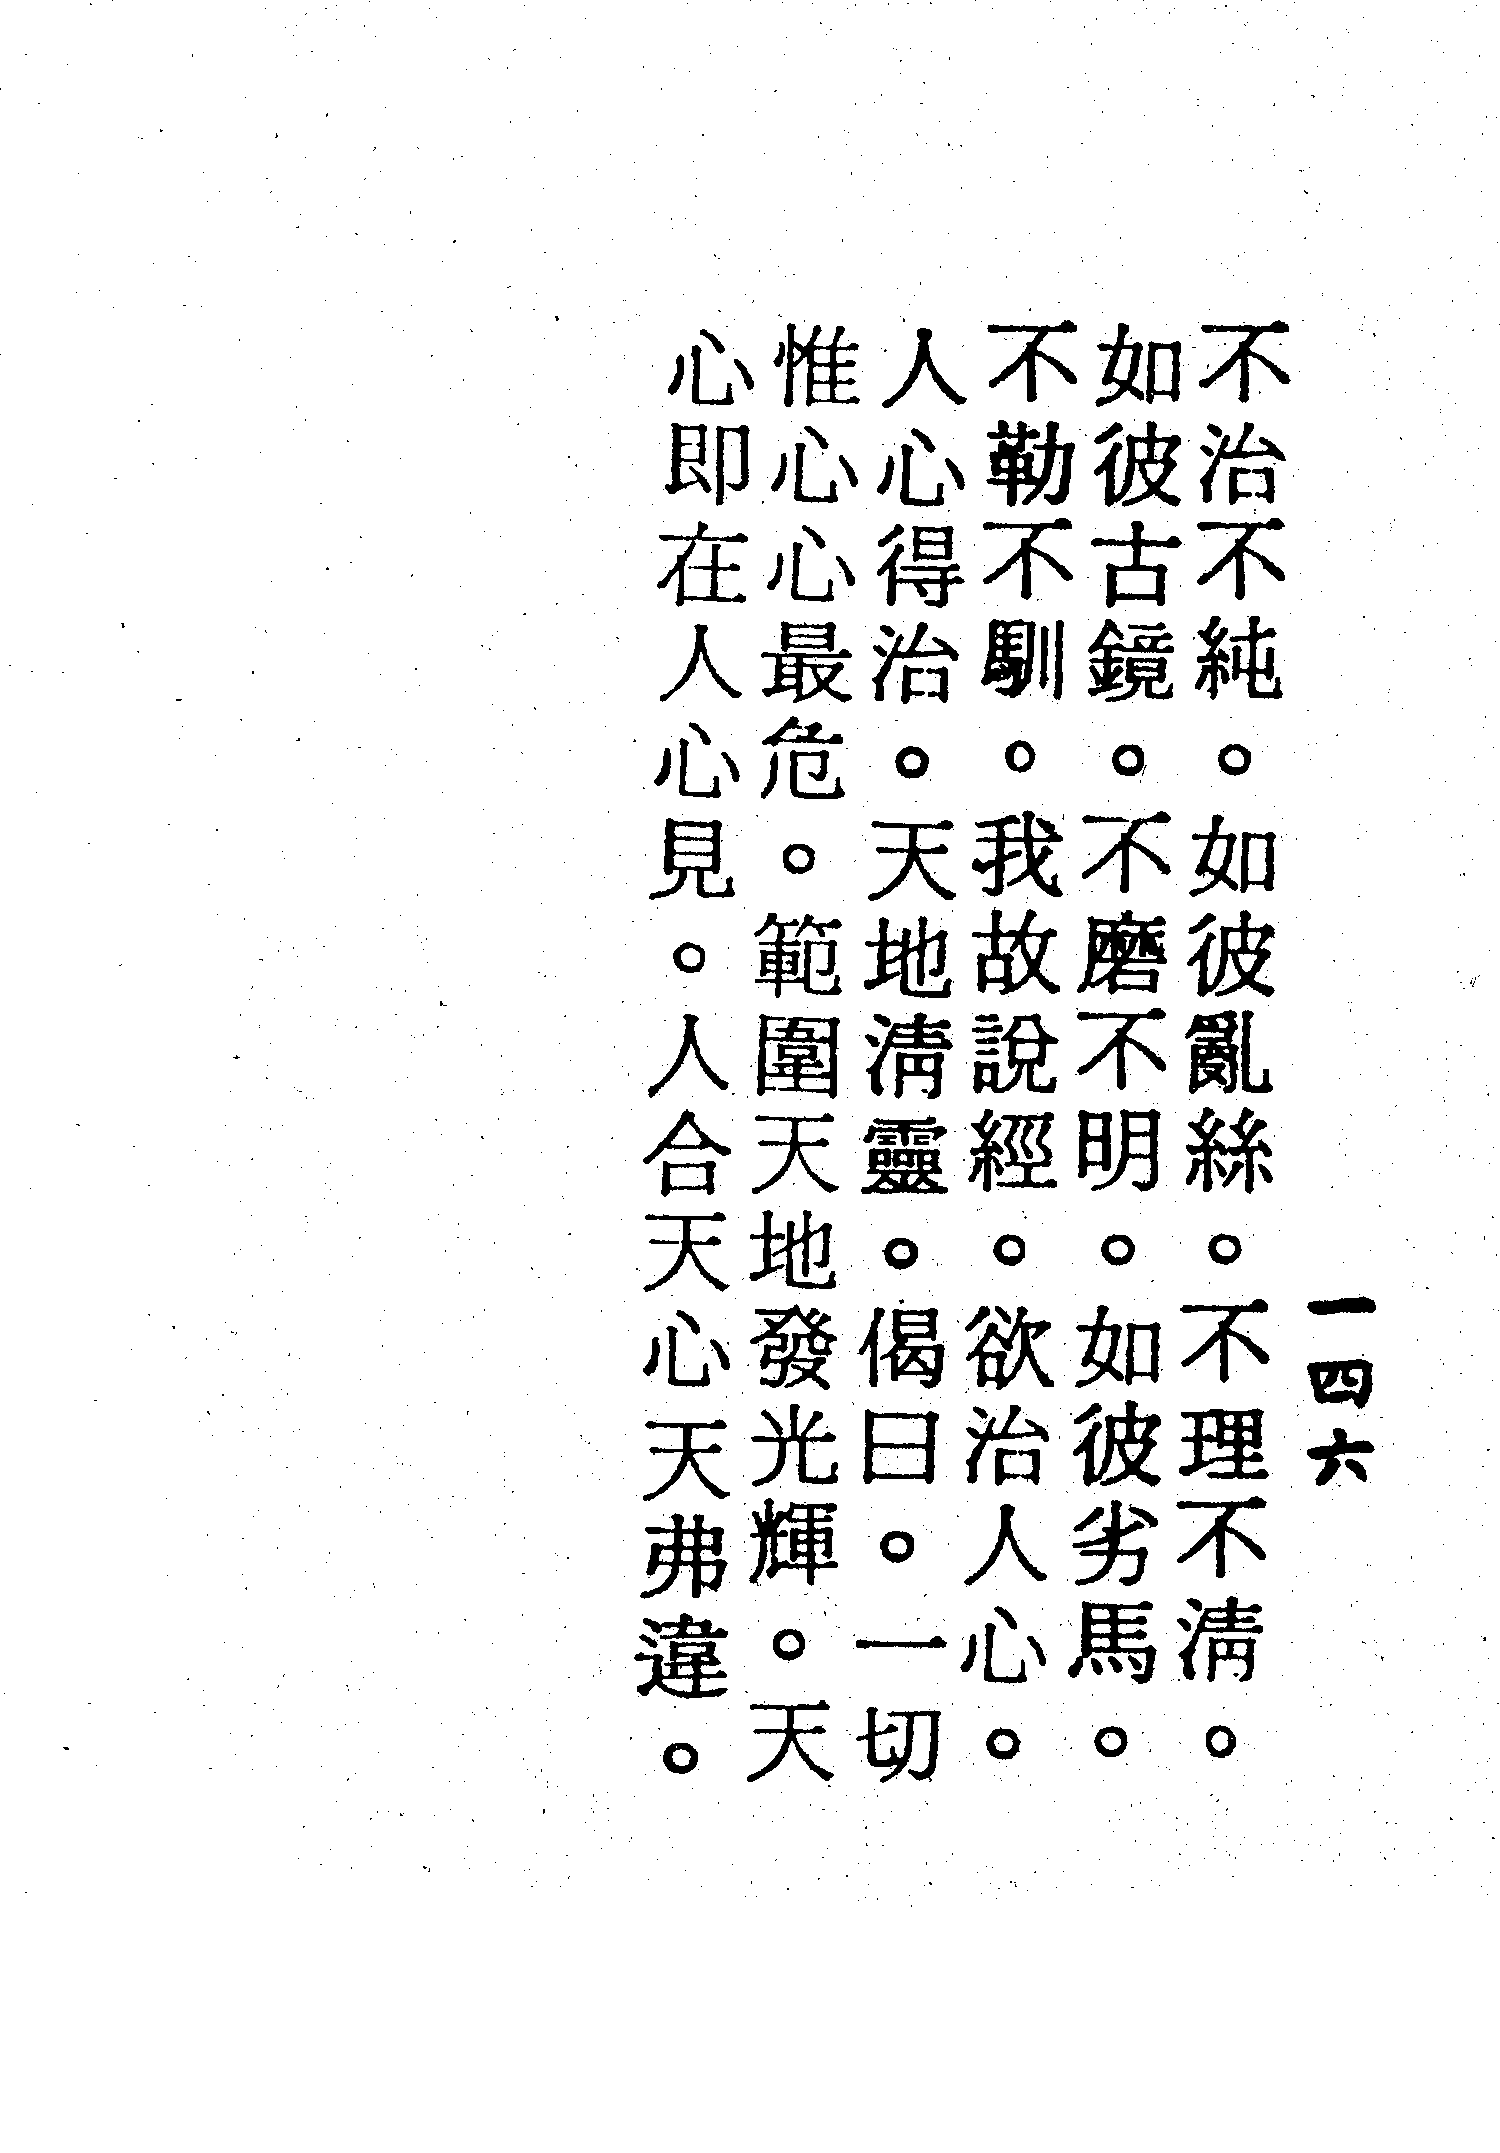 一四六
不治不純。如彼亂絲。不理不淸。
如彼古鏡。不磨不明。如彼劣馬。
不勒不馴。我故說經。欲治人心。
人心得治。天地淸靈。偈曰。一切
惟心心最危。範圍天地發光輝。天
心即在人心見。人合天心天弗違。